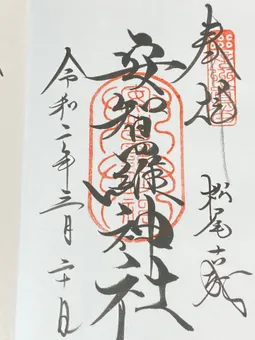 奉拝
松尾十歳
安智羅神社
令和二年三月二十日